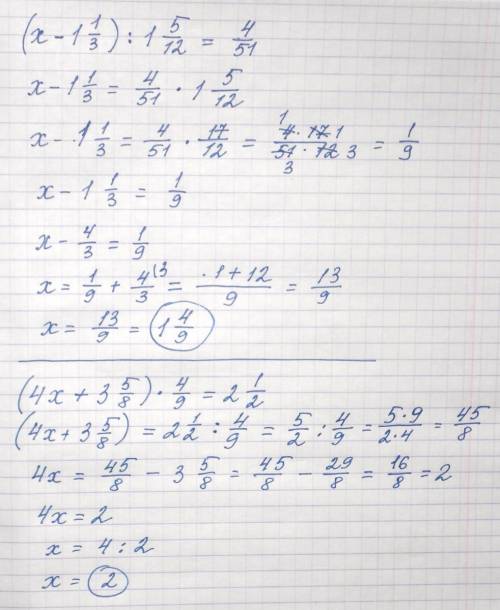 (x - 1 1/3) : 1 5/12 = 4/51
x - 1 1/3 = 4/51 · 1 5/12
x - 1 1/3 = 4/51 · 17/12 = (4 · 17)/(51 · 12) 1 1 3 3 = 1/9
x - 1 1/3 = 1/9
x - 4/3 = 1/9
x = 1/9 + 4/3 (3 = (· 1 + 12)/9 = 13/9
x = 13/9 = 1 4/9
(4x + 3 5/8) · 4/9 = 2 1/2
(4x + 3 5/8) = 2 1/2 : 4/9 = 5/2 : 4/9 = (5 · 9)/(2 · 4) = 45/8
4x = 45/8 - 3 5/8 = 45/8 - 29/8 = 16/8 = 2
4x = 2
x = 4 : 2
x = 2